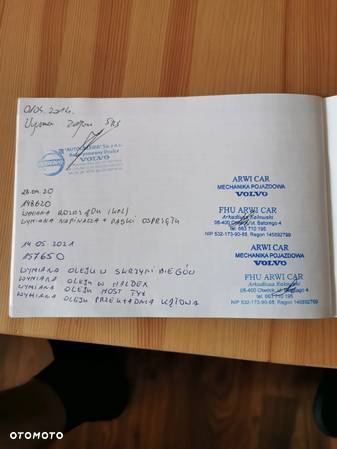 "AUTO
Autoryzowany Dealer
VOLVO
28.04.20
148620
WYMIANA ROZRZĄDU (KPL)
WYMIANA NAPINACZA + PASKI OSPRZĘTU
14.05.2021
157650
WYMIANA OLEJU W SKRZYNI BIEGÓW
WYMIANA OLEJU W HALDEX
WYMIANA OLEJU MOST TYŁ
WYMIANA OLEJU PRZEKŁADNIA KĄTOWA
ARWI CAR
MECHANIKA POJAZDOWA
VOLVO
FHU ARWI CAR
Arkadiusz
05-400 Otwock, ul. Batorego 4
tel. 663 710 195
NIP 532-173-90-88, Regon 145892799
ARWI CAR
MECHANIKA POJAZDOWA
VOLVO
FHU ARWI CAR
Arkadiusz
05-400 Otwock, ul. Batorego 4
tel. 663 710 195
NIP 532-173-90-88, Regon 145892799
OTOMOTO